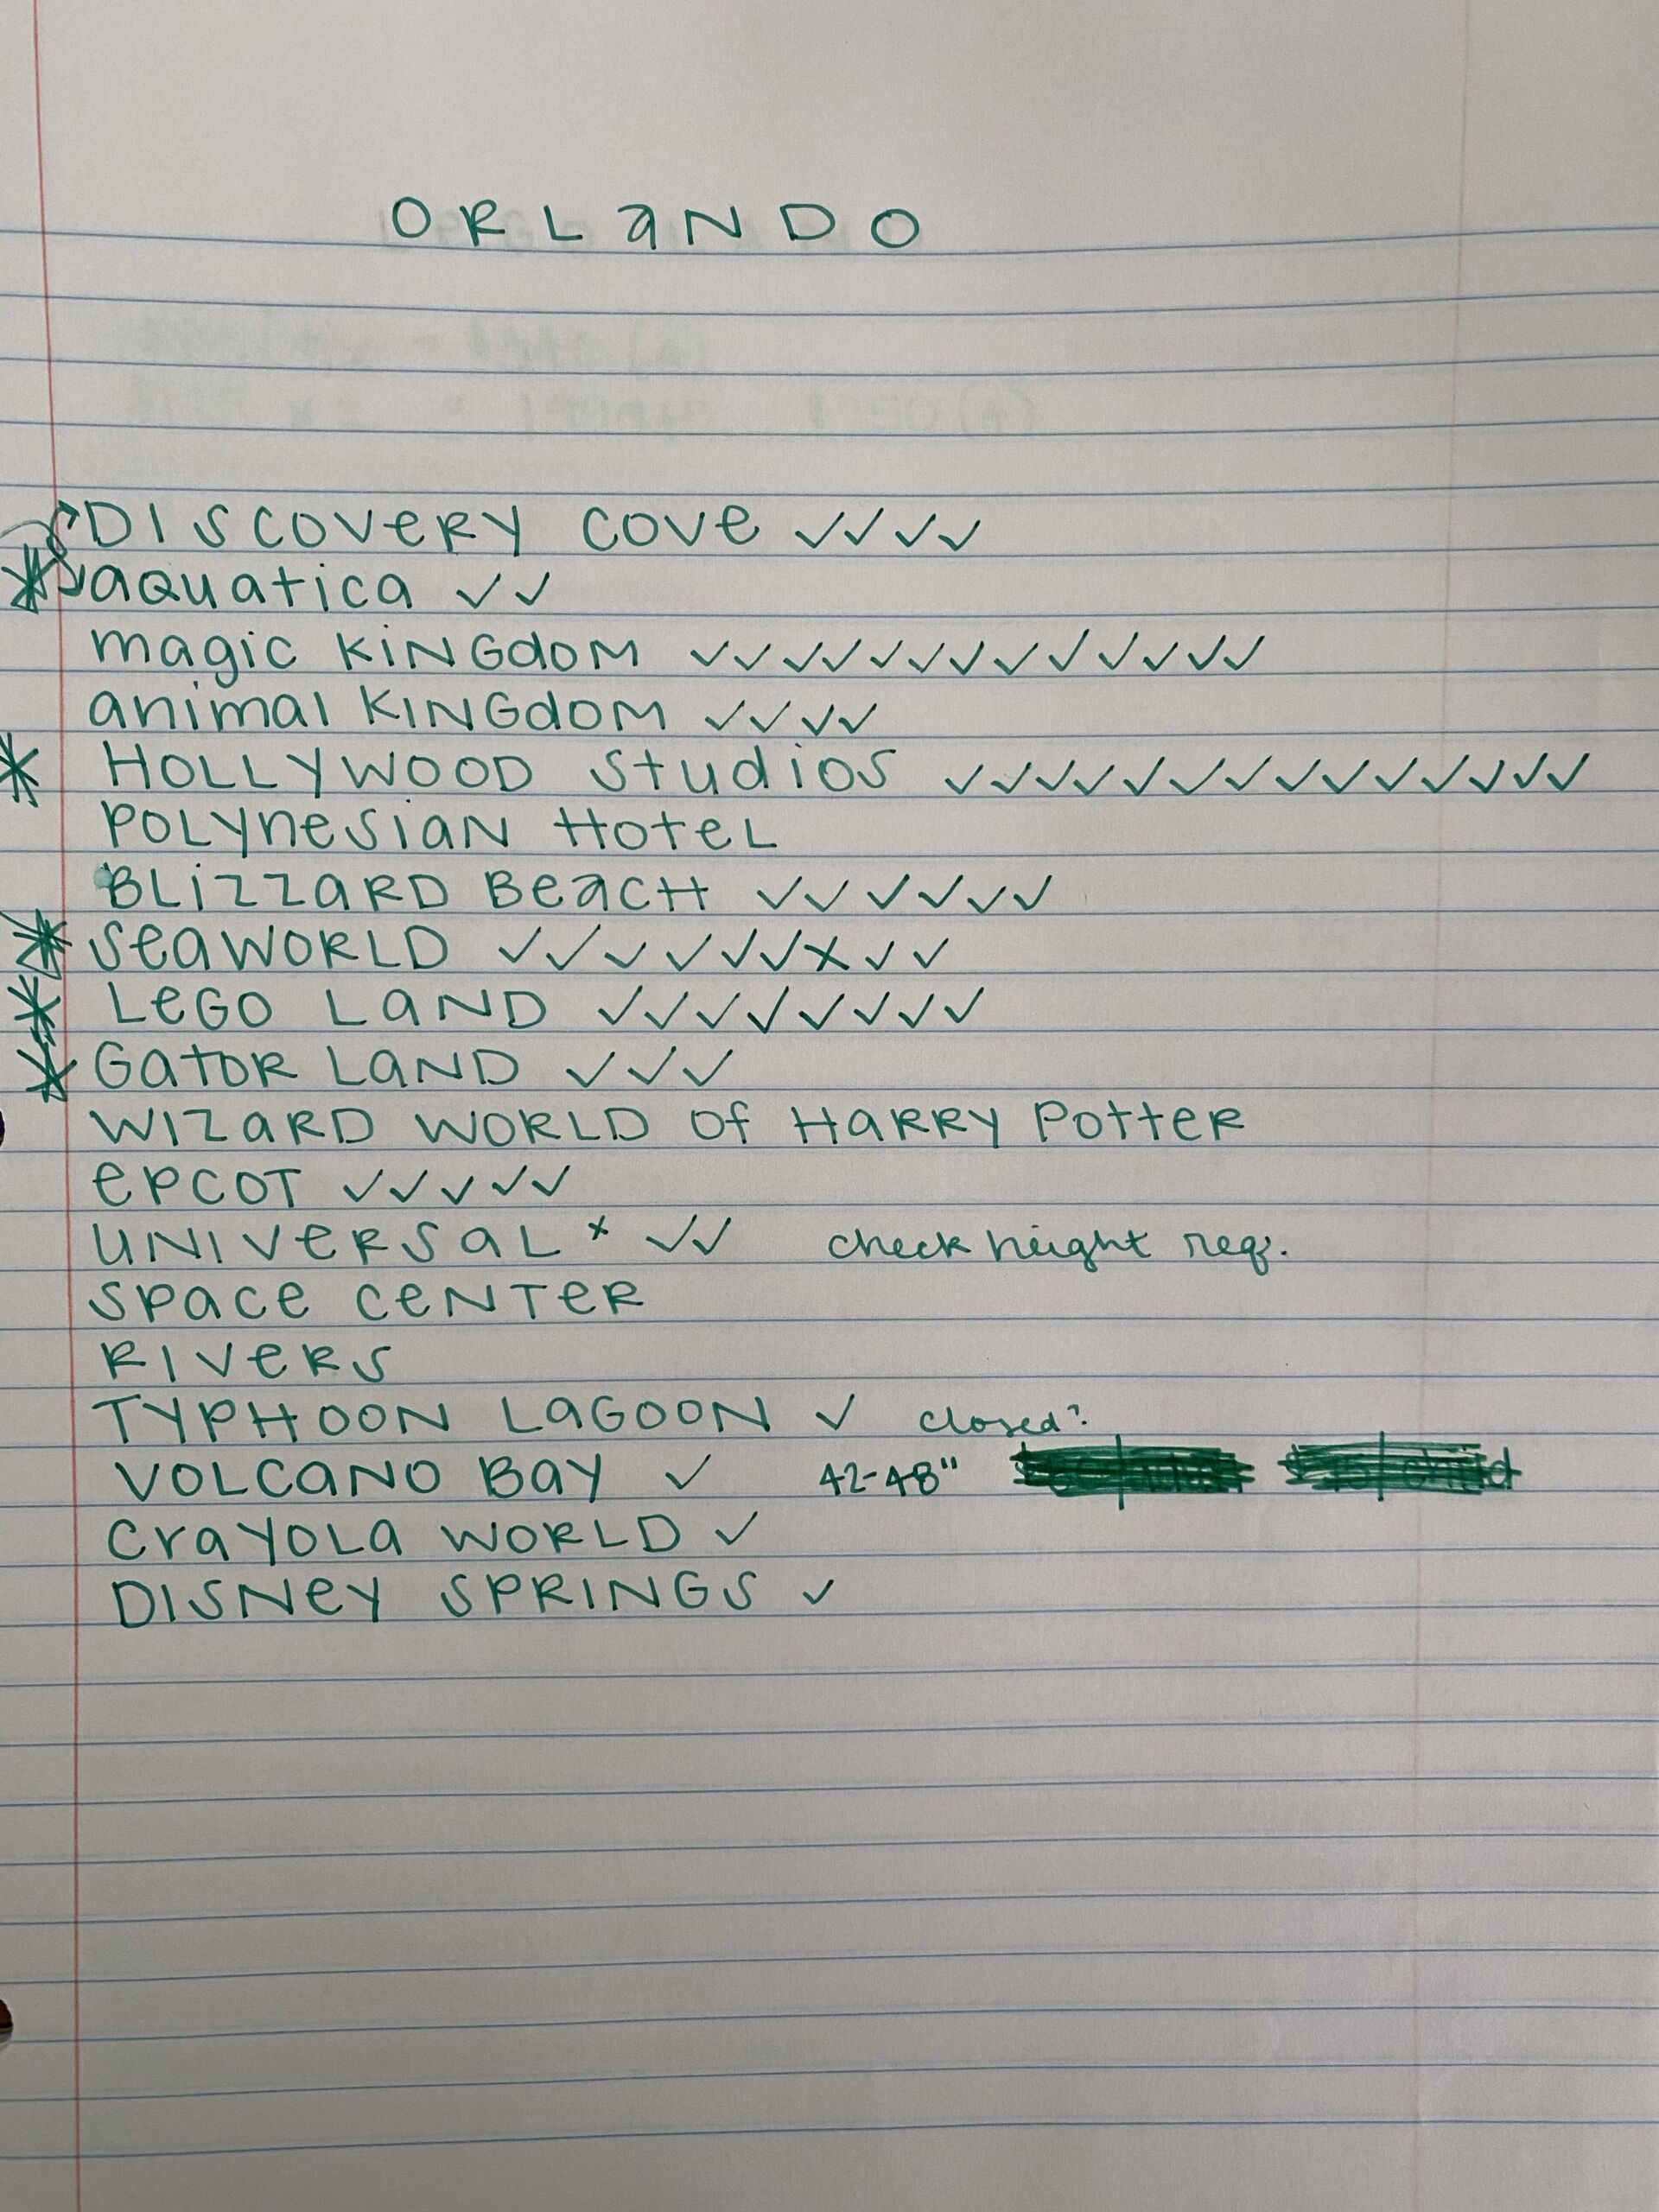 ORLaNDO
DISCOVeRY COVe ✓✓✓✓
* aquatica ✓✓
magic KiNGdOM ✓✓✓✓✓✓✓✓✓✓✓✓✓
animal KINGdOM ✓✓✓✓
* HOLLYWOOD Studios ✓✓✓✓✓✓✓✓✓✓✓✓✓✓
POLYnesiaN HoteL
BLiZZaRD BeacH ✓✓✓✓✓✓
* SeaWORLD ✓✓✓✓✓✓x✓✓
* LeGO LaND ✓✓✓✓✓✓✓✓
* GatOR LaND ✓✓✓
WIZaRD WORLD Of HaRRY POtteR
ePCOT ✓✓✓✓✓
UNIVeRSaL * ✓✓ check height req.
SPace CeNTeR
RIVeRS
TYPHOON LaGOON ✓ closed?
VOLCANO BaY ✓ 42-48"
CrayOLa WORLD ✓
DISNeY SPRINGS ✓